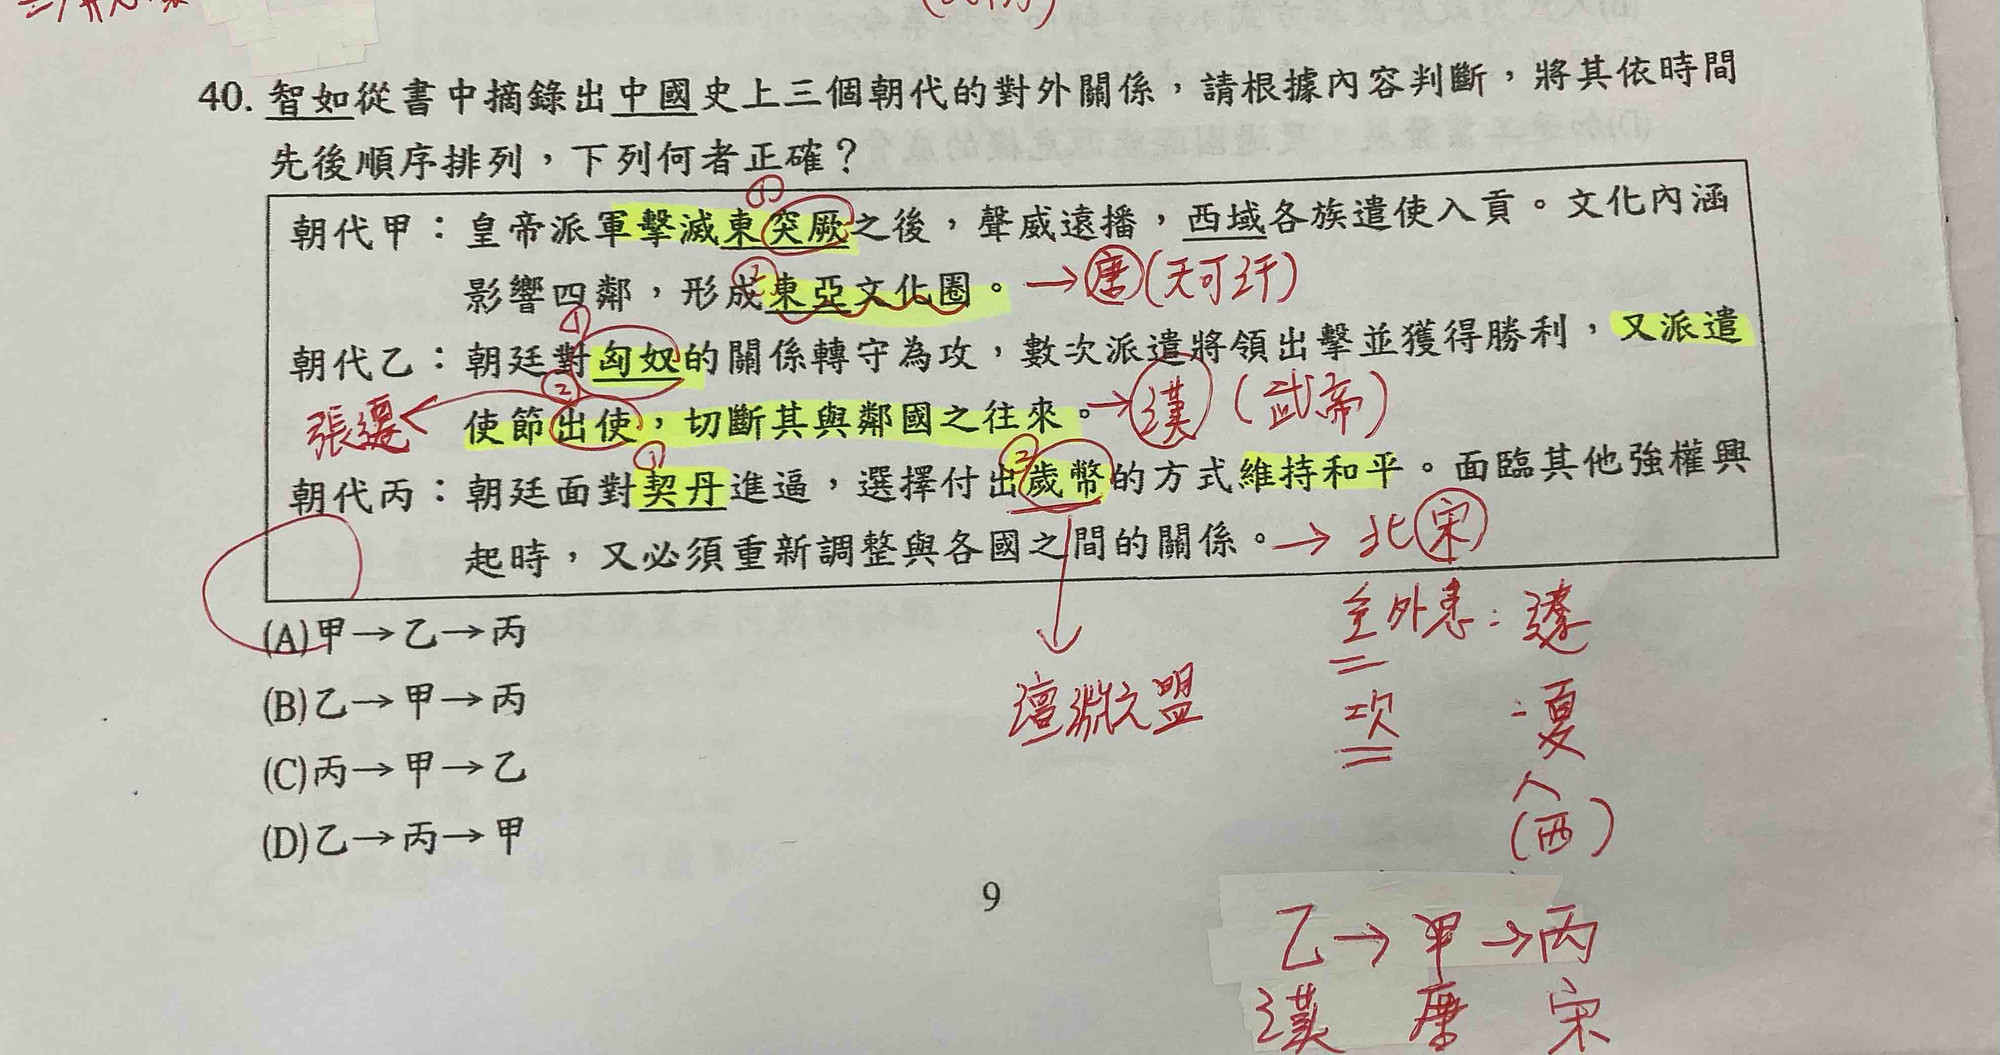 40. 智如從書中摘錄出中國史上三個朝代的對外關係，請根據內容判斷，將其依時間
先後順序排列，下列何者正確？
①
朝代甲：皇帝派軍擊滅東突厥之後，聲威遠播，西域各族遣使入貢。文化內涵
②
影響四鄰，形成東亞文化圈。→唐(天可汗)
①
朝代乙：朝廷對匈奴的關係轉守為攻，數次派遣將領出擊並獲得勝利，又派遣
②
張騫 使節出使，切斷其與鄰國之往來。→漢(武帝)
① ②
朝代丙：朝廷面對契丹進逼，選擇付出歲幣的方式維持和平。面臨其他強權興
起時，又必須重新調整與各國之間的關係。→北宋
主外患：遼
(A)甲→乙→丙
澶淵之盟
次 夏
(B)乙→甲→丙
(西)
(C)丙→甲→乙
(D)乙→丙→甲
9
乙→甲→丙
漢 唐 宋